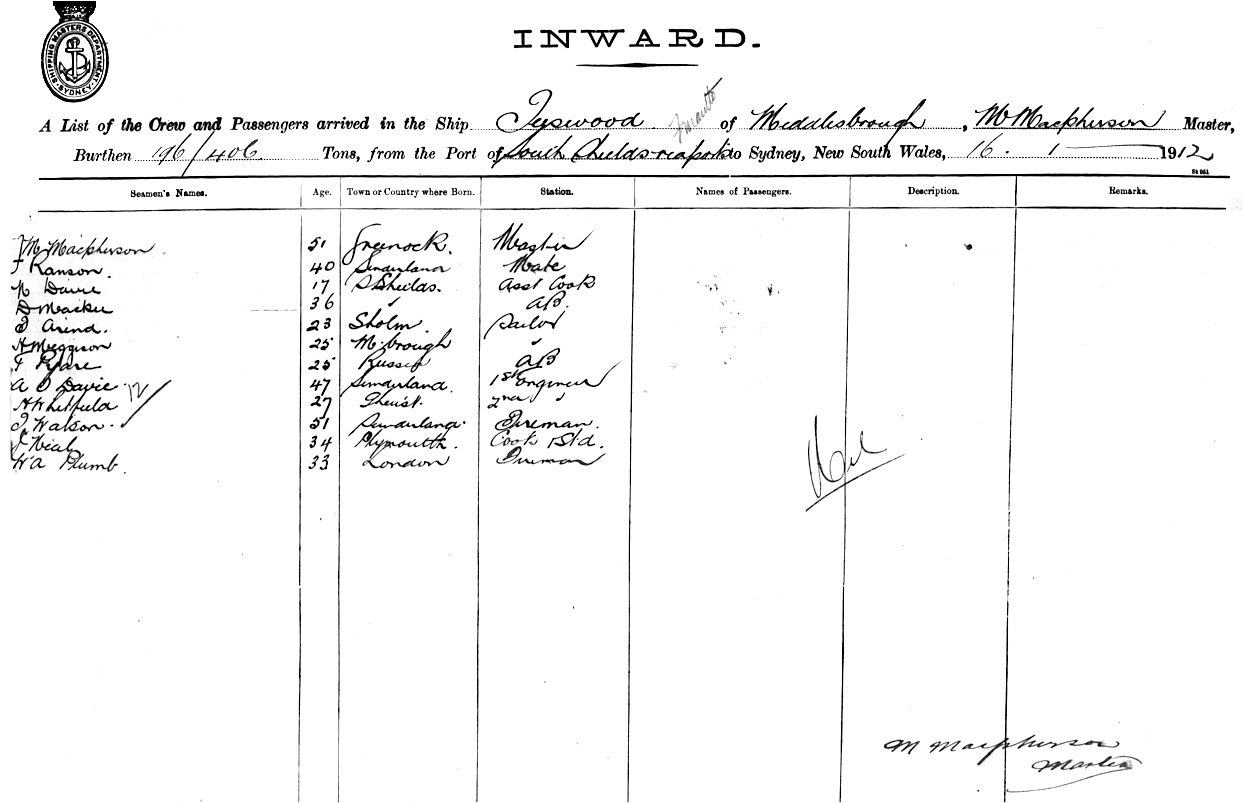 SHIPPING MASTERS DEPARTMENT
SYDNEY
INWARD.
A List of the Crew and Passengers arrived in the Ship Tyswood of Middlesbrough, M Macpherson Master,
Burthen 196/406 Tons, from the Port of South Shields to Sydney, New South Wales, 16. 1 1912
Seamen's Names. Age. Town or Country where Born. Station. Names of Passengers. Description. Remarks.
M Macpherson 51 Greenock. Master
Ranson. 40 Sunderland Mate
17 S Shields. Asst Cook
D Mackie 36 " AB.
Arend. 23 Sholm. Sailor
H Meggison 25 M.brough "
25 Russia AB
A O Davie 12 47 Sunderland. 1st Engineer
H Whitfield 27 2nd "
Watson. 51 Sunderland. Fireman.
34 Plymouth. Cook Std.
W A Plumb. 33 London Fireman
Nil
M Macpherson
Master